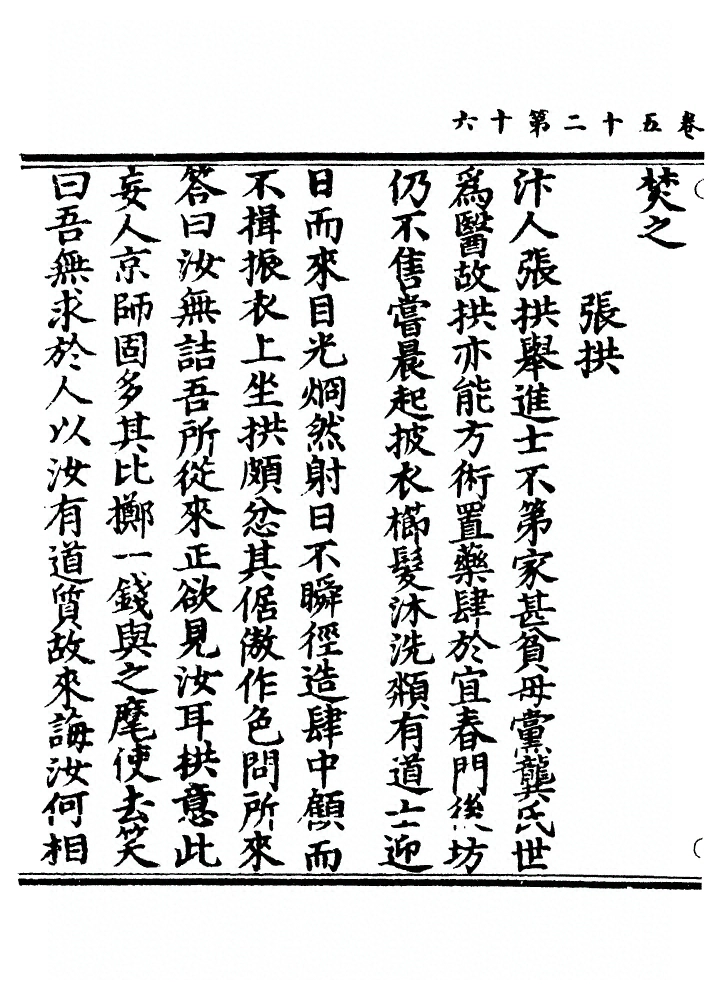 卷五十二第十六
焚之
張拱
汴人張拱舉進士不第家甚貧母黨龔氏世
爲醫故拱亦能方術置藥肆於宜春門後坊
仍不售嘗晨起披衣櫛髮沐洗頮有道士迎
日而來目光烱然射日不瞬徑造肆中顧而
不揖振衣上坐拱頗忿其倨傲作色問所來
答曰汝無詰吾所從來正欲見汝耳拱意此
妄人京師固多其比擲一錢與之麾使去笑
曰吾無求於人以汝有道質故來誨汝何相